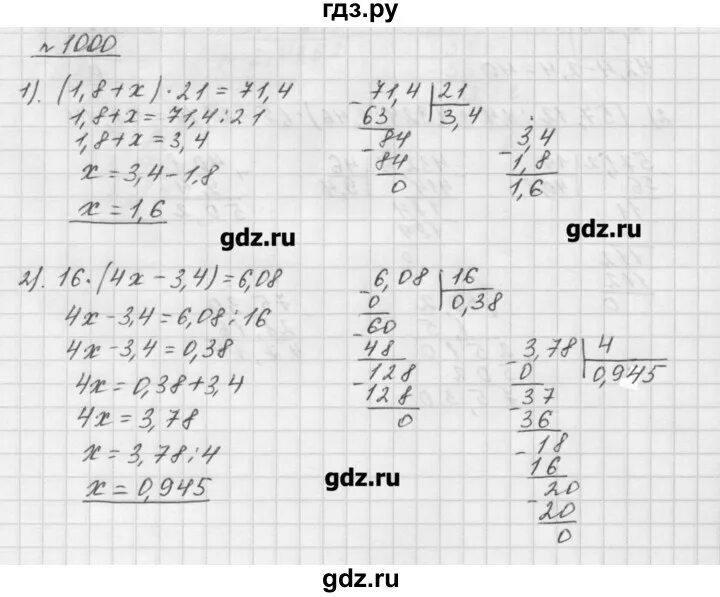 гдз.ру
№ 1000
1). (1,8+x)·21=71,4
1,8+x=71,4:21
1,8+x=3,4
x=3,4-1,8
x=1,6
71,4 | 21
- 63 | 3,4
84
- 84
0
3,4
- 1,8
1,6
gdz.ru
gdz.ru
2). 16·(4x-3,4)=6,08
4x-3,4=6,08:16
4x-3,4=0,38
4x=0,38+3,4
4x=3,78
x=3,78:4
x=0,945
6,08 | 16
- 0 | 0,38
60
- 48
128
- 128
0
3,78 | 4
- 0 | 0,945
37
- 36
18
- 16
20
- 20
0
gdz.ru
gdz.ru